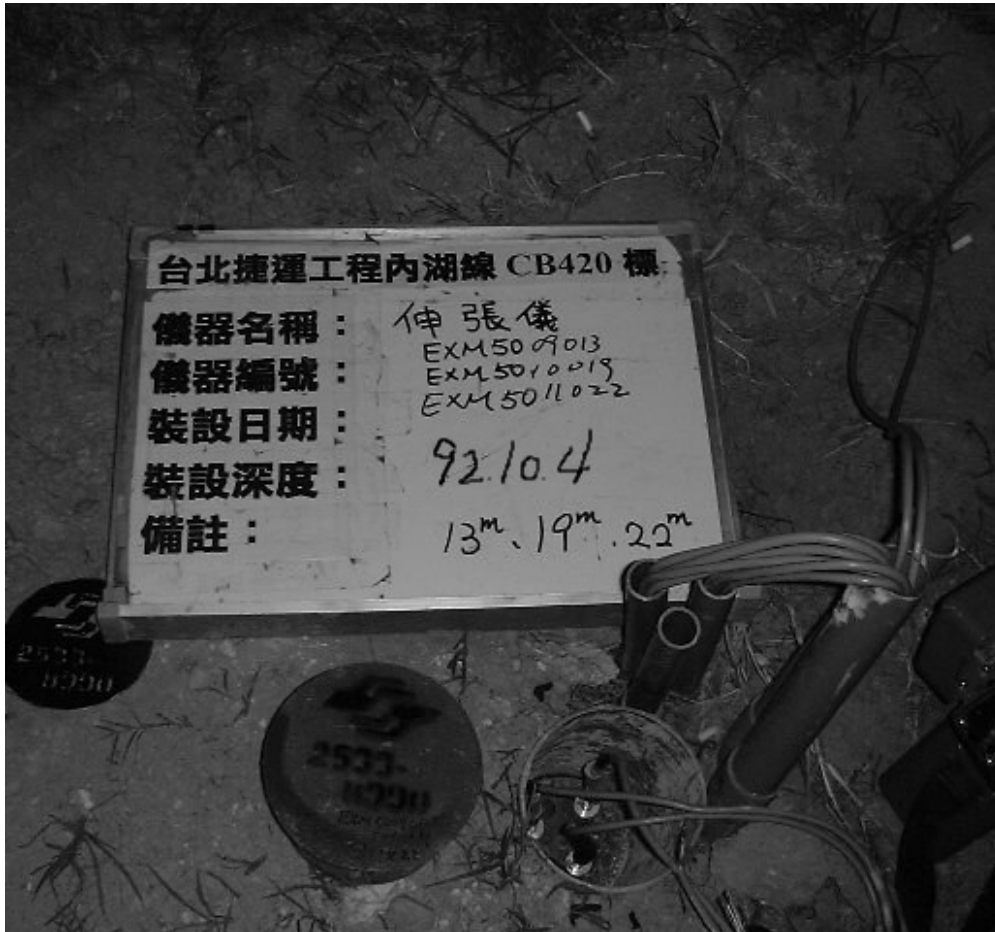 台北捷運工程內湖線 CB420 標
儀器名稱： 伸張儀
EXM5009013
儀器編號： EXM5010019
EXM5011022
裝設日期：
裝設深度： 92.10.4
備註： 13m、19m.22m
2533-
8990
2533-
8990